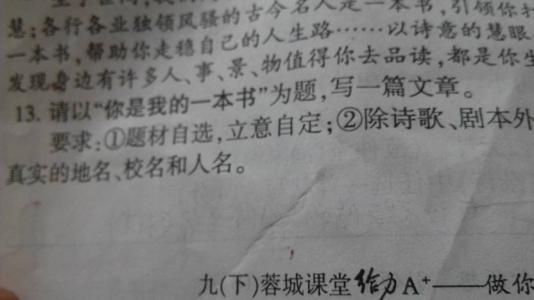 慧;各行各业独领风骚的古今名人是一本书,引领你
一本书,帮助你走稳自己的人生路……以诗意的慧眼
发现身边有许多人、事、景、物值得你去品读,都是你
13. 请以“你是我的一本书”为题,写一篇文章。
要求:①题材自选,立意自定;②除诗歌、剧本外
真实的地名、校名和人名。
九(下)蓉城课堂给力A+——做你